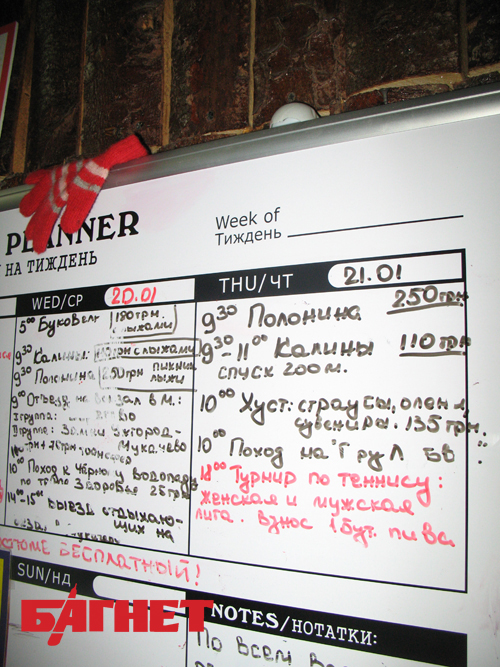 PLANNER
НА ТИЖДЕНЬ
Week of
Тиждень
WED/СР 20.01
5⁰⁰ Буковель 1180 грн.
лыжами
9³⁰ Калины
9³⁰ Полонина 250 грн пикник
лыжи
9⁰⁰
I группа:
II группа: Ужгород-
Мукачево
10⁰⁰ Поход к Чёрному водопаду
по тропе Здоровье 25 грн
14⁰⁰-15⁰⁰ выезд отдыхаю-
щих на
БЕСПЛАТНЫЙ!
THU/ЧТ 21.01
9³⁰ Полонина 250 грн
9³⁰-11⁰⁰ Калины 110 грн
спуск 200 м.
10⁰⁰ Хуст: страусы, олени,
сувениры. 135 грн.
10⁰⁰ Поход на
18⁰⁰ Турнир по теннису:
женская и мужская
лига. Взнос 1 бут. пива
SUN/НД
NOTES/НОТАТКИ:
По всем
БАГНЕТ